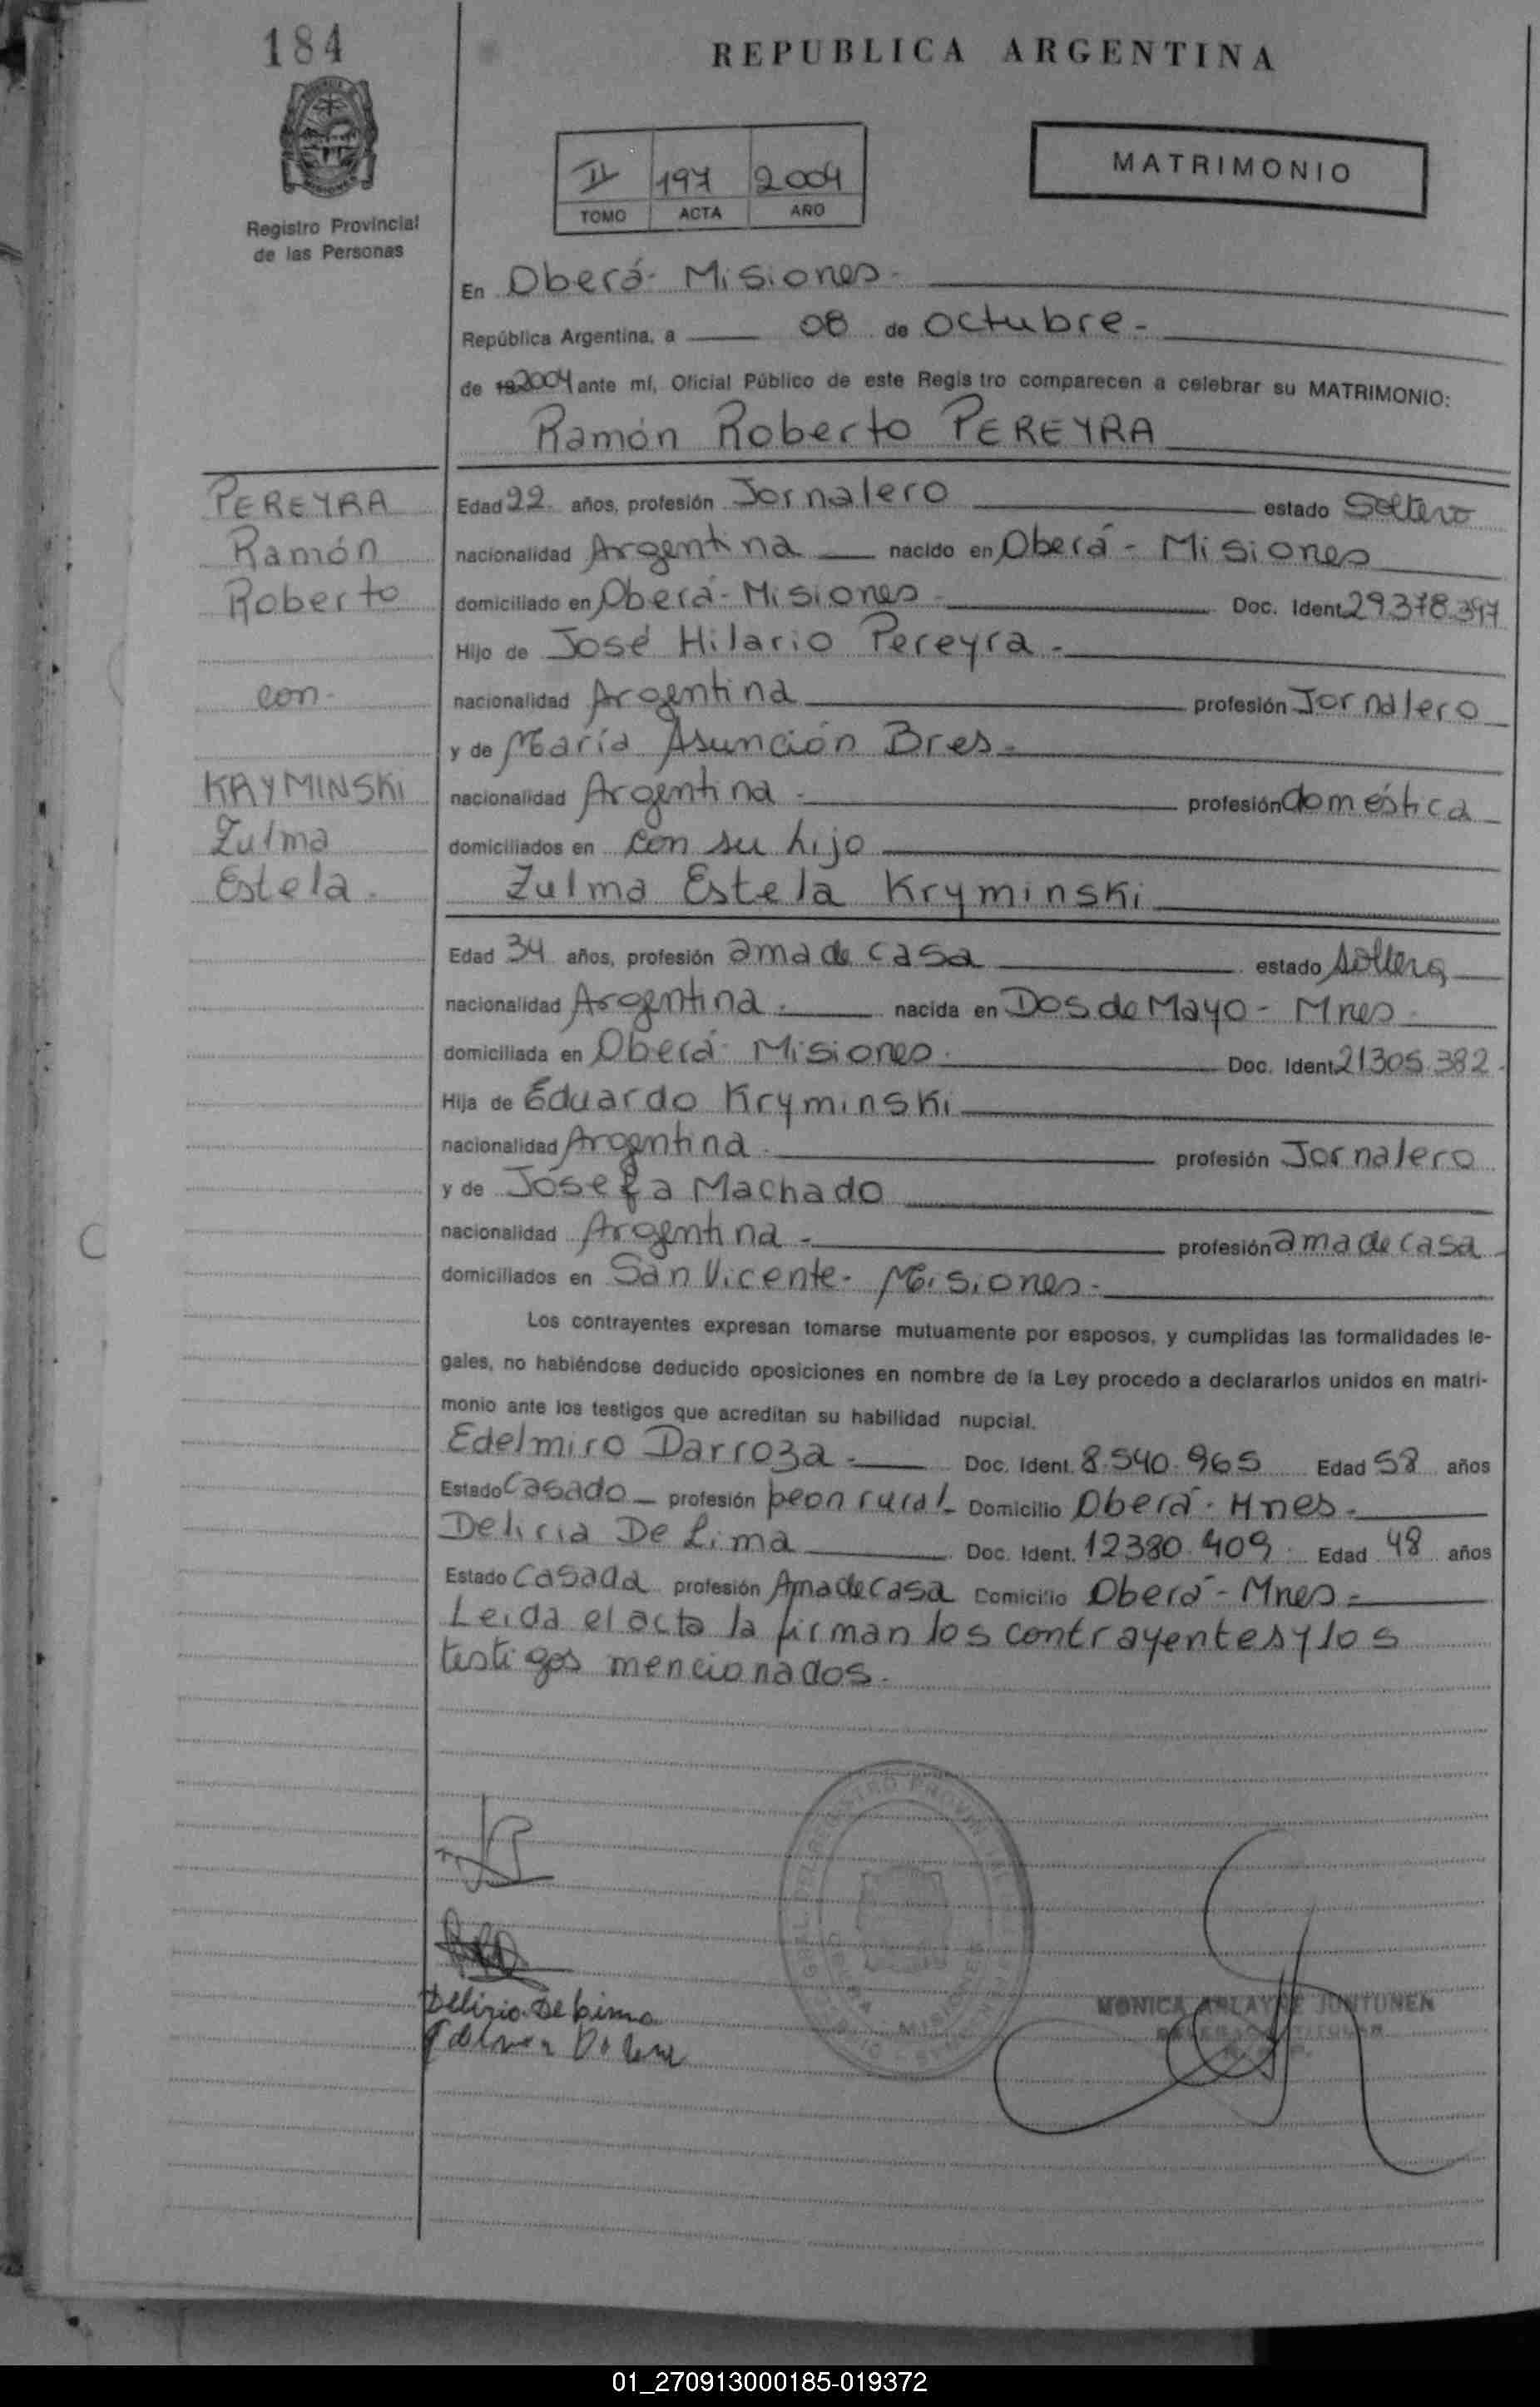 184
REPUBLICA ARGENTINA
II 197 2004
TOMO ACTA AÑO
MATRIMONIO
Registro Provincial
de las Personas
En Oberá - Misiones -
República Argentina, a 08 de octubre -
de 192004 ante mí, Oficial Público de este Registro comparecen a celebrar su MATRIMONIO:
Ramón Roberto PEREYRA
PEREYRA
Ramón
Roberto
con -
KRYMINSKI
Zulma
Estela -
Edad 22 años, profesión Jornalero estado Soltero
nacionalidad Argentina nacido en Oberá - Misiones
domiciliado en Oberá - Misiones - Doc. Ident. 29.378.397
Hijo de José Hilario Pereyra -
nacionalidad Argentina profesión Jornalero
y de María Asunción Bres -
nacionalidad Argentina - profesión doméstica
domiciliados en con su hijo
Zulma Estela Kryminski
Edad 34 años, profesión ama de casa estado soltera
nacionalidad Argentina - nacida en Dos de Mayo - Mnes -
domiciliada en Oberá - Misiones - Doc. Ident. 21305.382 -
Hija de Eduardo Kryminski
nacionalidad Argentina - profesión Jornalero
y de Josefa Machado
nacionalidad Argentina - profesión ama de casa -
domiciliados en San Vicente - Misiones -
Los contrayentes expresan tomarse mutuamente por esposos, y cumplidas las formalidades le-
gales, no habiéndose deducido oposiciones en nombre de la Ley procedo a declararlos unidos en matri-
monio ante los testigos que acreditan su habilidad nupcial.
Edelmiro Darroza - Doc. Ident. 8.540.965 Edad 58 años
Estado Casado profesión peon rural Domicilio Oberá - Mnes -
Delicia De Lima Doc. Ident. 12380.409 Edad 48 años
Estado Casada profesión Ama de casa Domicilio Oberá - Mnes -
Leida el acta la firman los contrayentes y los
testigos mencionados -
MISIONES
MONICA JUNTUNEN
01_270913000185-019372